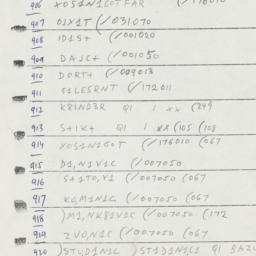 906 XOS1N1GOTFAR (/176010
907 OJX1T (/031070
908 ID1S+ (/001020
909 DAJC+ (/001050
910 DORT+ (/009013
911 (/172011
912 K8IND3R Q1 1 XX (249
913 S+1K+ Q1 1 XX (105 (108
914 XOS1N1GOT (/176010 (067
915 D1,N1V1C (/007050
916 S+1TO,Y1 (/007050 (067
917 KO,M1N1C (/007050 (067
918 )M1,NK81V1C (/007050 (172
919 ZVO,N1C (/007050 (067
920 )STUD1N1C )ST1D1N1C1 Q1